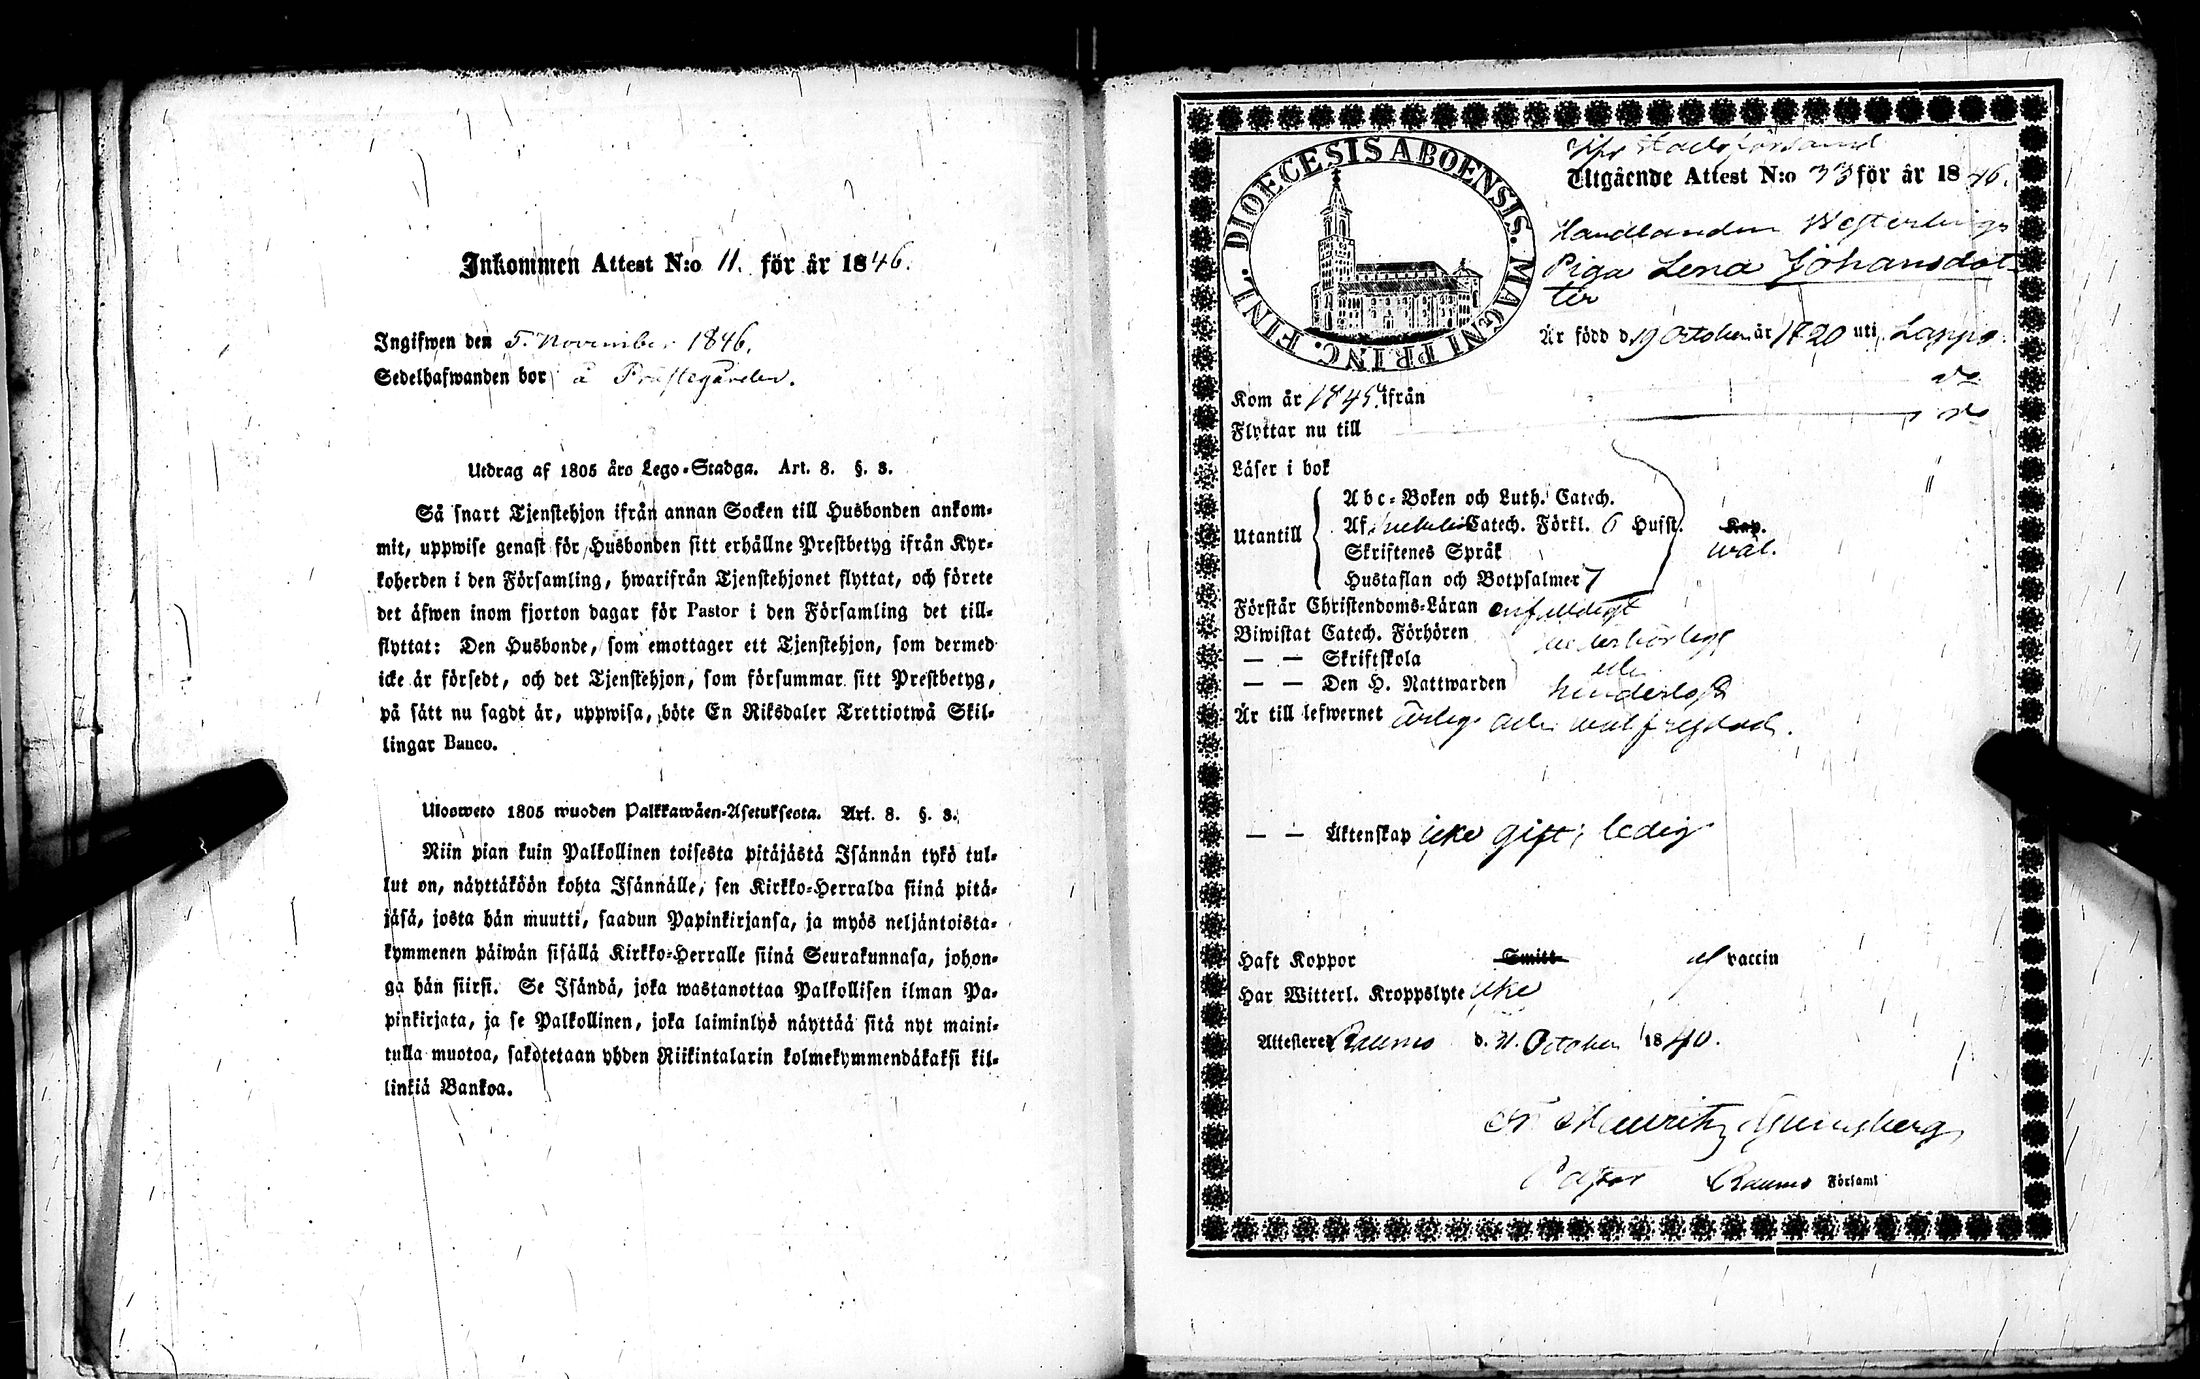 Inkommen Attest N:o 11. för år 1846.
Ingifwen den 5. November 1846.
Sedelhafwanden bor å Prästegården.
Utdrag af 1805 års Lego-Stadga. Art. 8. §. 3.
Så snart Tjenstehjon ifrån annan Socken till Husbonden ankom-
mit, uppwise genast för Husbonden sitt erhållne Prestbetyg ifrån Kyr-
koherden i den Församling, hwarifrån Tjenstehjonet flyttat, och förete
det äfwen inom fjorton dagar för Pastor i den Församling det till-
flyttat: Den Husbonde, som emottager ett Tjenstehjon, som dermed
icke är försedt, och det Tjenstehjon, som försummar sitt Prestbetyg,
på sätt nu sagdt är, uppwisa, böte En Riksdaler Trettiotwå Skil-
lingar Banco.
Ulosweto 1805 wuoden Palkkawäen-Asetuksesta. Art. 8. §. 3.
Niin pian kuin Palkollinen toisesta pitäjästä Isännän tykö tul-
lut on, näyttäköön kohta Isännälle, sen Kirkko-Herralda siinä pitä-
jäsä, josta hän muutti, saadun Papinkirjansa, ja myös neljäntoista-
kymmenen päiwän sisällä Kirkko-Herralle siinä Seurakunnasa, johon-
ga hän siirsi. Se Isändä, joka wastanottaa Palkollisen ilman Pa-
pinkirjata, ja se Palkollinen, joka laiminlyö näyttää sitä nyt maini-
tulla muotoa, sakotetaan yhden Riikintalarin kolmekymmendäkaksi kil-
linkiä Bankoa.
DIOECESIS ABOENSIS. MAGNI PRINC. FINL.
Utgående Attest N:o 33 för år 1846.
Handlanden Westerlings
Piga Lena Johansdot-
ter
Är född d. 19 October år 1820 uti Lappo
Kom år 1845 ifrån do
Flyttar nu till do
Läser i bok "
Abc-Boken och Luth. Catech. "
Utantill Af Catech. Förkl. 6 Hufst. Kap.
Skriftenes Språk wäl.
Hustaflan och Botpsalmer 7
Förstår Christendoms-Läran enfaldigt
Biwistat Catech. Förhören
— — Skriftskola
— — Den H. Nattwarden
Är till lefwernet ärlig och wäl frejdad.
— — Äktenskap icke gift, ledig
Haft Koppor Smitt af vaccin
Har Witterl. Kroppslyte icke
Attesterer Raumo d. 21. October 1846.
Pastor Raumo Församl